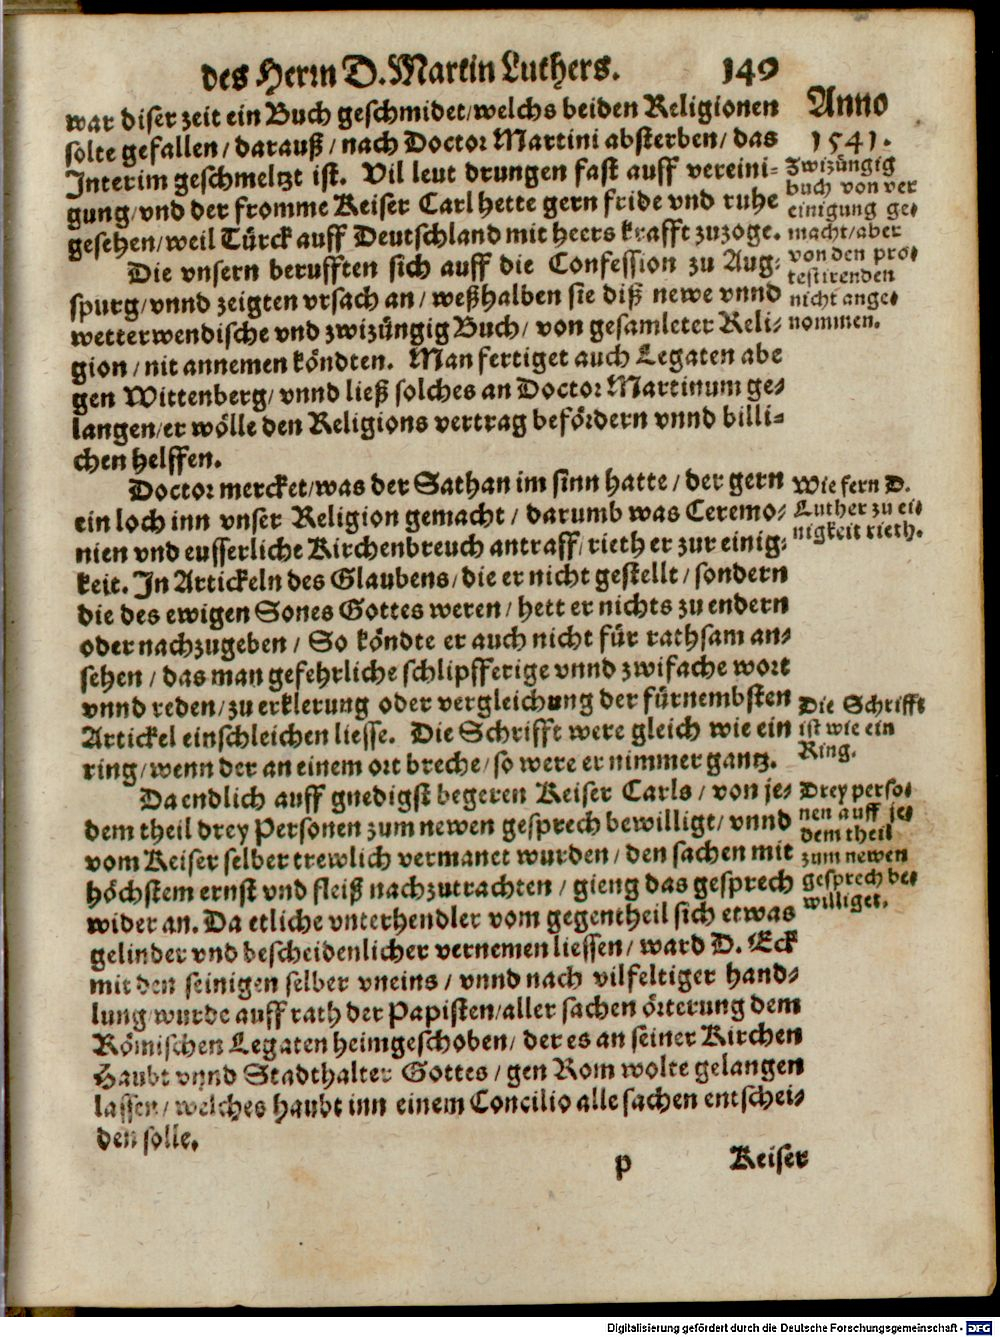 des Herrn D. Martin Luthers. 149
war diser zeit ein Buch geschmidet/welchs beiden Religionen
solte gefallen/ darauß/ nach Doctor Martini absterben/ das
Interim geschmeltzt ist. Vil leut drungen fast auff vereini-
gung/vnd der fromme Keiser Carl hette gern fride vnd ruhe
gesehen/weil Türck auff Deutschland mit heers krafft zuzöge.
Die vnsern berufften sich auff die Confession zu Aug-
spurg/vnnd zeigten vrsach an/ weßhalben sie diß newe vnnd
wetterwendische vnd zwizüngig Buch/ von gesamleter Reli-
gion/ nit annemen köndten. Man fertiget auch Legaten abe
gen Wittenberg/ vnnd ließ solches an Doctor Martinum ge-
langen/er wölle den Religions vertrag befördern vnnd billi-
chen helffen.
Doctor mercket/was der Sathan im sinn hatte/ der gern
ein loch inn vnser Religion gemacht/ darumb was Ceremo-
nien vnd eusserliche Kirchenbreuch antraff/ rieth er zur einig-
keit. In Artickeln des Glaubens/die er nicht gestellt/ sondern
die des ewigen Sones Gottes weren/ hett er nichts zu endern
oder nachzugeben/ So köndte er auch nicht für rathsam an-
sehen/ das man gefehrliche schlipfferige vnnd zwifache wort
vnnd reden/ zu erklerung oder vergleichung der fürnembsten
Artickel einschleichen liesse. Die Schrifft were gleich wie ein
ring/wenn der an einem ort breche/ so were er nimmer gantz.
Da endlich auff gnedigst begeren Keiser Carls/ von je-
dem theil drey Personen zum newen gesprech bewilligt/ vnnd
vom Keiser selber trewlich vermanet wurden/ den sachen mit
höchstem ernst vnd fleiß nachzutrachten/ gieng das gesprech
wider an. Da etliche vnterhendler vom gegentheil sich etwas
gelinder vnd bescheidenlicher vernemen liessen/ ward D. Eck
mit den seinigen selber vneins/ vnnd nach vilfeltiger hand-
lung wurde auff rath der Papisten/aller sachen örterung dem
Römischen Legaten heimgeschoben/ der es an seiner Kirchen
Haubt vnnd Stadthalter Gottes/ gen Rom wolte gelangen
lassen/ welches haubt inn einem Concilio alle sachen entschei-
den solle.
p Keiser
Anno
1541.
Zwizüngig
buch von ver
einigung ge-
macht/aber
von den pro-
testirenden
nicht ange-
nommen.
Wie fern D.
Luther zu ei-
nigkeit rieth.
Die Schrifft
ist wie ein
Ring.
Drey perso-
nen auff je-
dem theil
zum newen
gesprech be-
williget.
Digitalisierung gefördert durch die Deutsche Forschungsgemeinschaft - DFG